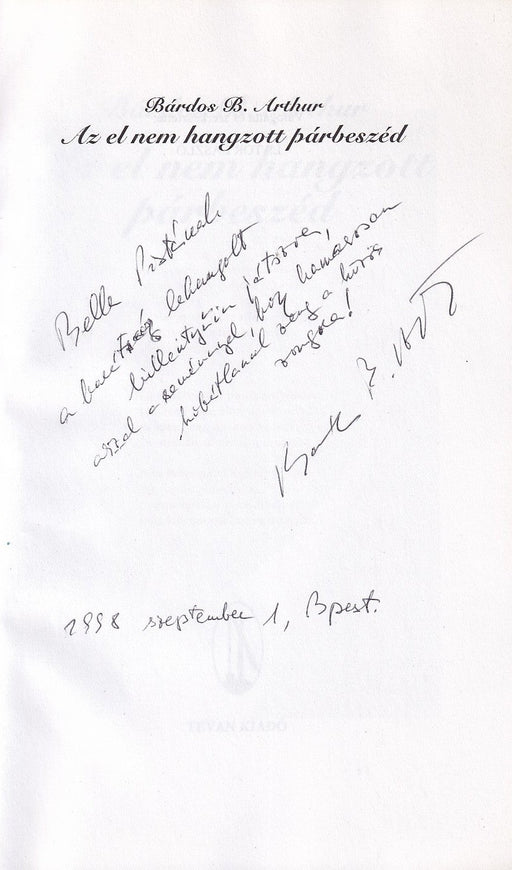 Bárdos B. Arthur
Az el nem hangzott párbeszéd
Bella Pistának,
a barátság lehangolt
billentyűin játszva,
azzal a reménnyel, hogy hamarosan
hibátlanul zeng a közös
zongora!
B. Art
1998 szeptember 1, Bpest.
TEVAN KIADÓ